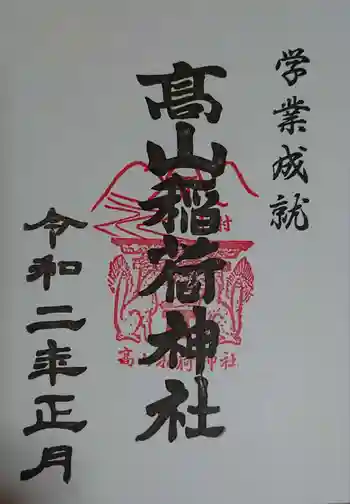 学業成就
髙山稲荷神社
令和二年正月
村
高山稲荷神社